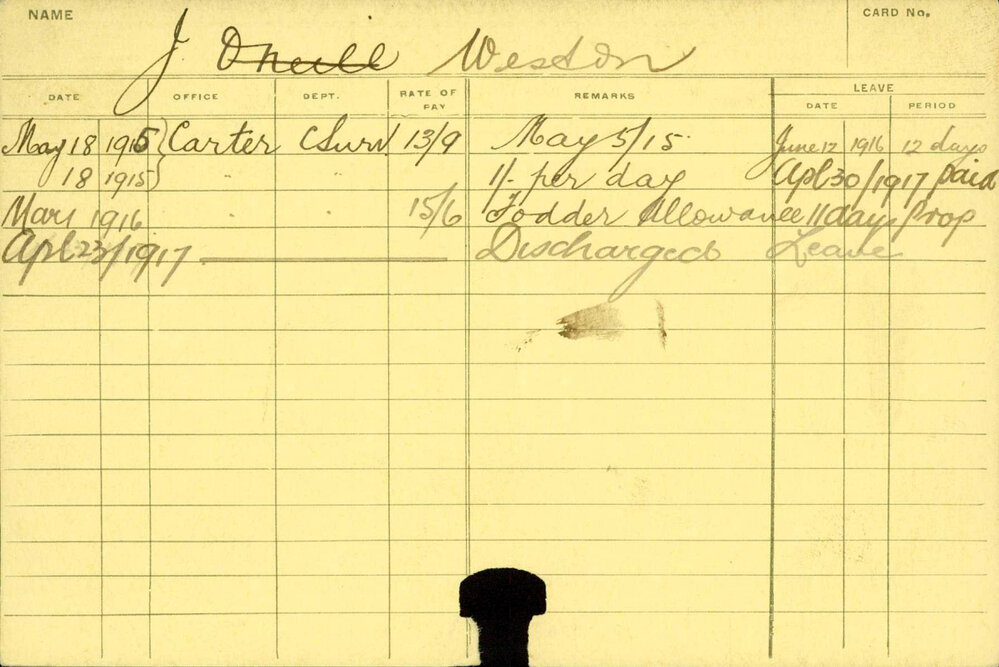 NAME
CARD No.
J. Oneill Weston
DATE OFFICE DEPT. RATE OF PAY REMARKS LEAVE
DATE PERIOD
May 18 1915 Carter CSurv 13/9 May 5/15 June 12 1916 12 days
18 1915 " " 1/- per day Apl 30/1917 paid
Mar 1 1916 " " 15/6 Fodder Allowance 11 days Prop
Apl 23/1917 Discharged Leave